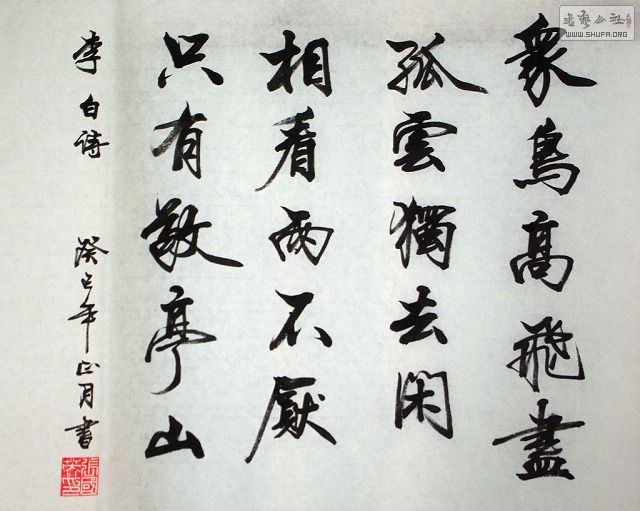 眾鳥高飛盡
孤雲獨去閑
相看兩不厭
只有敬亭山
李白詩
癸巳年正月書
WWW.SHUFA.ORG